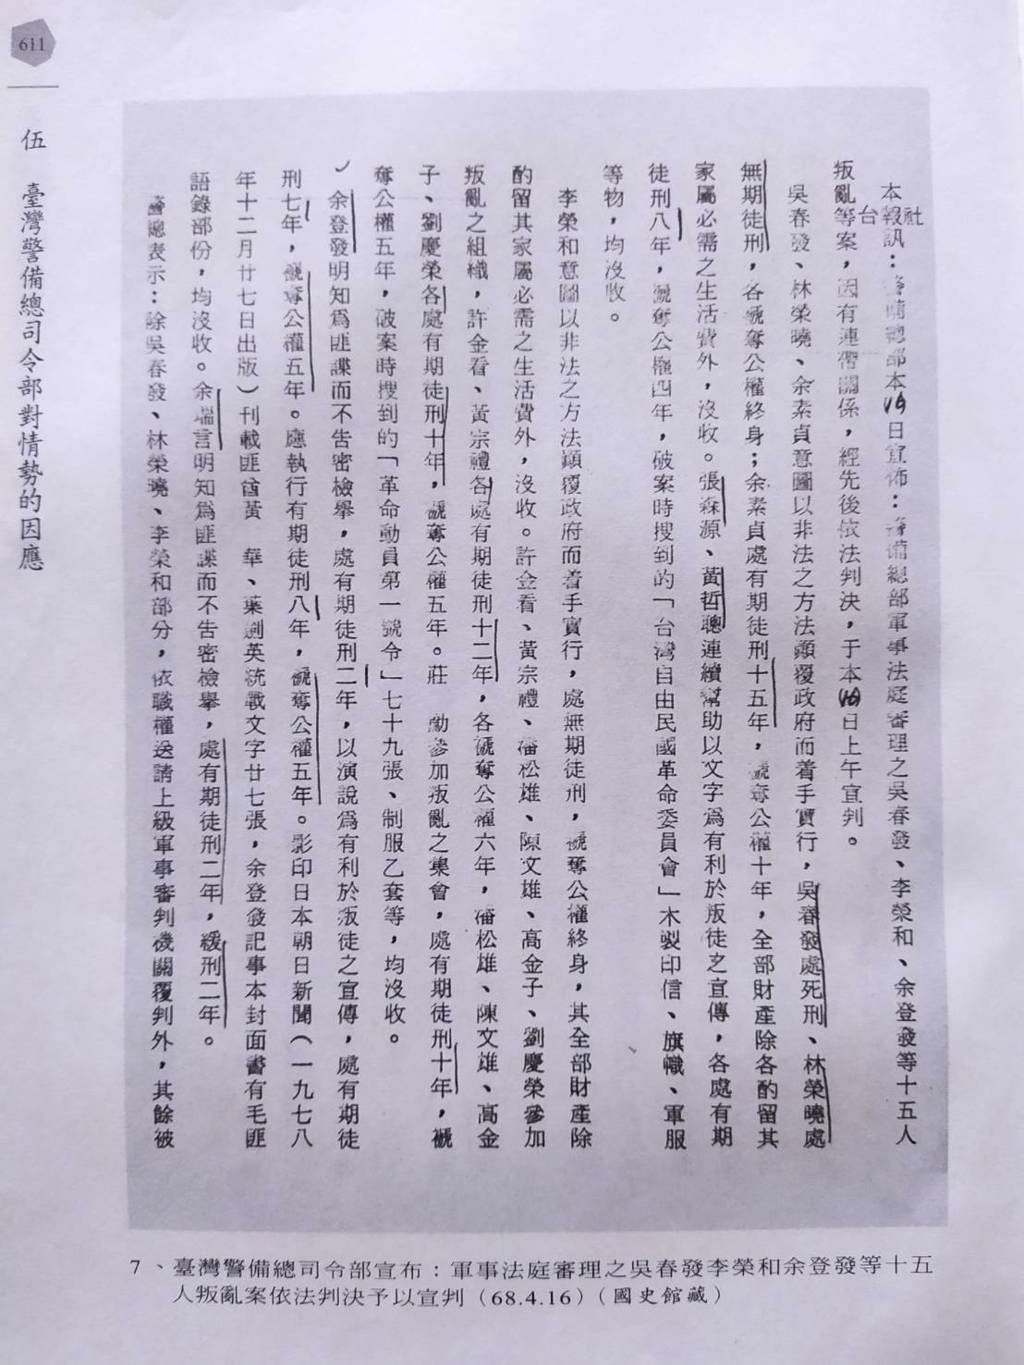 611
伍　臺灣警備總司令部對情勢的因應
本報訊：警備總部本16日宣佈：警備總部軍事法庭審理之吳春發、李榮和、余登發等十五人
台　社
叛亂等案，因有連帶關係，經先後依法判決，于本16日上午宣判。
吳春發、林榮曉、余素貞意圖以非法之方法顛覆政府而着手實行，吳春發處死刑、林榮曉處
無期徒刑，各褫奪公權終身；余素貞處有期徒刑十五年，褫奪公權十年，全部財產除各酌留其
家屬必需之生活費外，沒收。張森源、黃哲聰連續幫助以文字爲有利於叛徒之宣傳，各處有期
徒刑八年，褫奪公權四年，破案時搜到的「台灣自由民國革命委員會」木製印信、旗幟、軍服
等物，均沒收。
李榮和意圖以非法之方法顛覆政府而着手實行，處無期徒刑，褫奪公權終身，其全部財產除
酌留其家屬必需之生活費外，沒收。許金看、黃宗禮、潘松雄、陳文雄、高金子、劉慶榮參加
叛亂之組織，許金看、黃宗禮各處有期徒刑十二年，各褫奪公權六年，潘松雄、陳文雄、高金
子、劉慶榮各處有期徒刑十年，褫奪公權五年。莊　勳參加叛亂之集會，處有期徒刑十年，褫
奪公權五年，破案時搜到的「革命動員第一號令」七十九張、制服乙套等，均沒收。
余登發明知爲匪諜而不告密檢舉，處有期徒刑二年，以演說爲有利於叛徒之宣傳，處有期徒
刑七年，褫奪公權五年。應執行有期徒刑八年，褫奪公權五年。影印日本朝日新聞（一九七八
年十二月廿七日出版）刊載匪酋黃　華、葉劍英統戰文字廿七張，余登發記事本封面書有毛匪
語錄部份，均沒收。余瑞言明知爲匪諜而不告密檢舉，處有期徒刑二年，緩刑二年。
警總表示：除吳春發、林榮曉、李榮和部分，依職權送請上級軍事審判機關覆判外，其餘被
7、臺灣警備總司令部宣布：軍事法庭審理之吳春發李榮和余登發等十五
人叛亂案依法判決予以宣判（68.4.16）（國史館藏）